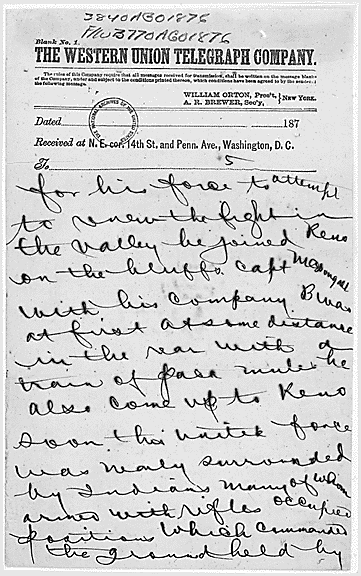 3840AGO1876
F/w3770AGO1876
Blank No. 1.
THE WESTERN UNION TELEGRAPH COMPANY.
The rules of this Company require that all messages received for transmission, shall be written on the message blanks of the Company, under and subject to the conditions printed thereon, which conditions have been agreed to by the sender of the following message.
WILLIAM ORTON, Pres't,
A. R. BREWER, Sec'y,
NEW YORK.
Dated 187
Received at N. E. cor. 14th St. and Penn. Ave., Washington, D. C.
To 5
for his force to attempt
to renew the fight in
the valley he joined Reno
on the bluffs Capt McDougall
with his company B was
at first at some distance
in the rear with a
train of pack mules he
also come up to Reno
soon this united force
was nearly surrounded
by Indians many of whom
armed with rifles occupied
positions which commanded
the ground held by